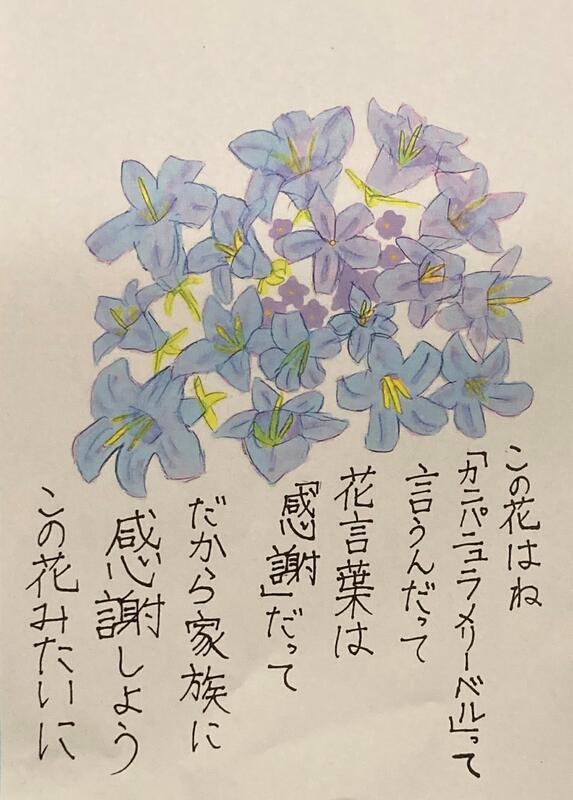 この花はね
「カンパニュラメリーベル」って
言うんだって
花言葉は
「感謝」だって
だから家族に
感謝しよう
この花みたいに